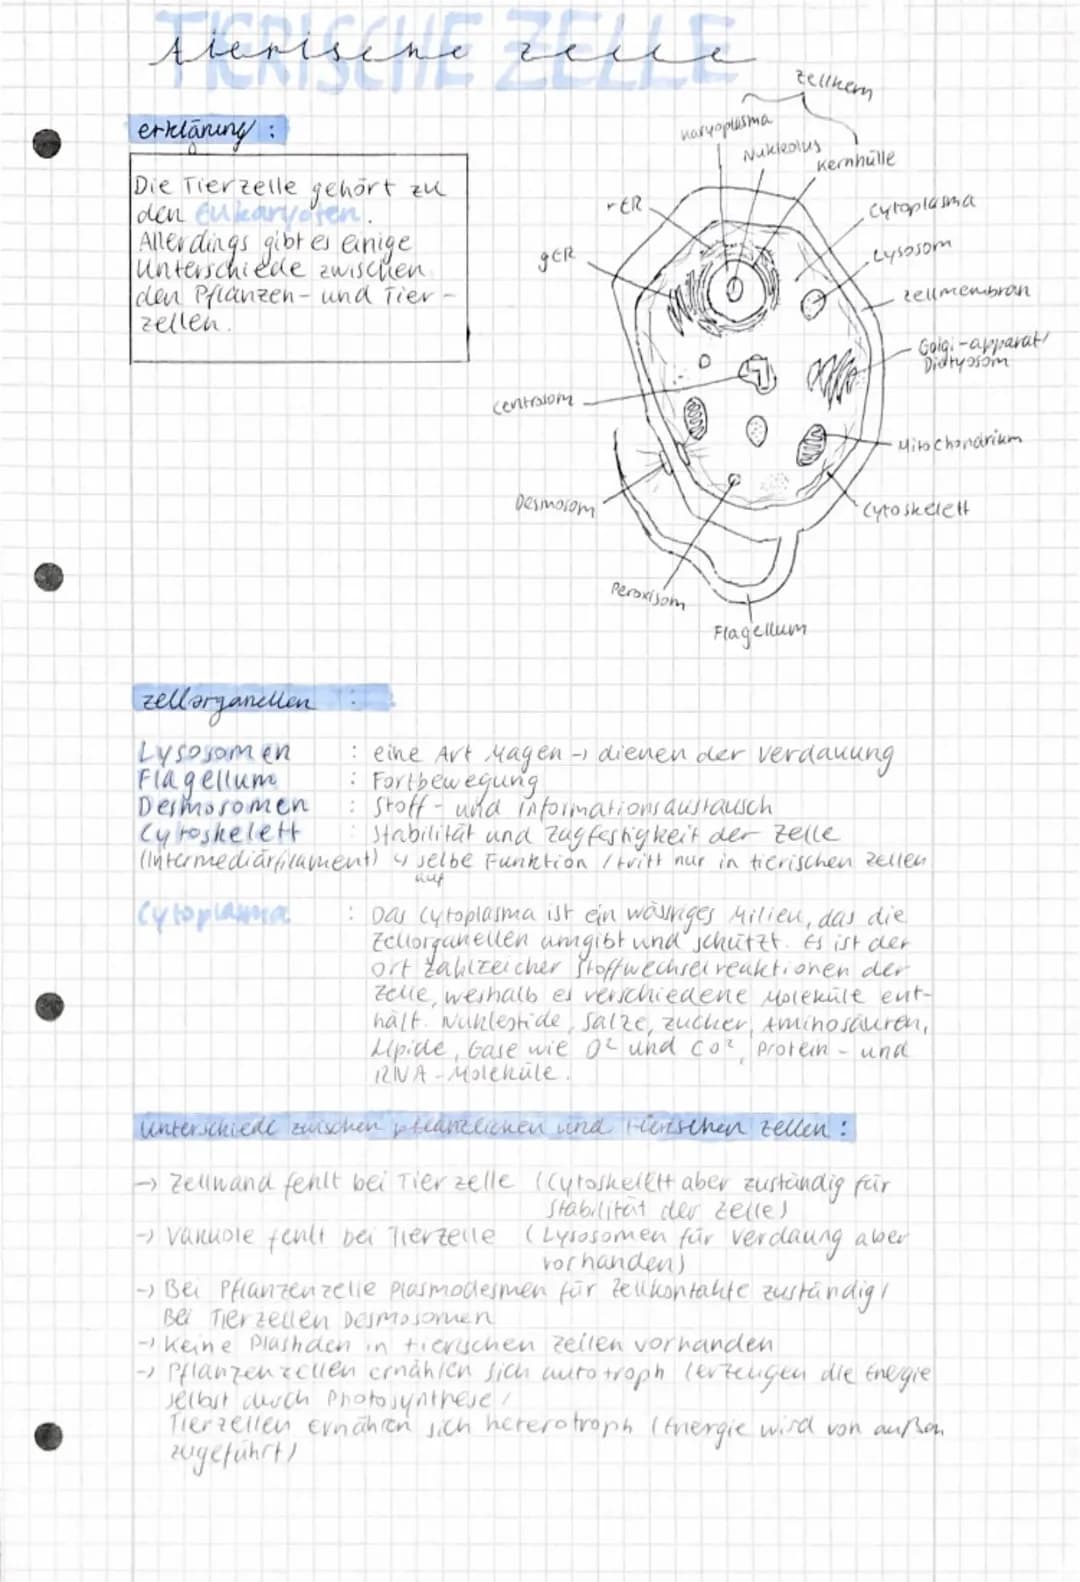 TIERISCHE ZELLE
tierische zelle
erklärung :
Die Tierzelle gehört zu
den Eukaryoten.
Allerdings gibt es einige
Unterschiede zwischen
den Pflanzen- und Tier-
zellen.
Zellkern
Karyoplasma
Nukleolus
Kernhülle
rER
gER
Cytoplasma
Lysosom
Zellmembran
Golgi-apparat/
Diktyosom
Centrosom
Mitochondrium
Desmosom
Cytoskelett
Peroxisom
Flagellum
zellorganellen :
Lysosomen : eine Art Magen → dienen der Verdauung
Flagellum : Fortbewegung
Desmosomen : Stoff- und Informationsaustausch
Cytoskelett : Stabilität und Zugfestigkeit der Zelle
(Intermediärfilament) ↳ selbe Funktion / tritt nur in tierischen Zellen
auf
Cytoplasma : Das Cytoplasma ist ein wässriges Milieu, das die
Zellorganellen umgibt und schützt. Es ist der
Ort zahlreicher Stoffwechselreaktionen der
Zelle, weshalb es verschiedene Moleküle ent-
hält. Nukleotide, Salze, Zucker, Aminosäuren,
Lipide, Gase wie O² und CO², Protein- und
RNA-Moleküle.
Unterschiede zwischen pflanzlichen und tierischen zellen :
→ Zellwand fehlt bei Tierzelle (Cytoskelett aber zuständig für
Stabilität der Zelle)
→ Vakuole fehlt bei Tierzelle (Lysosomen für Verdaung aber
vorhanden)
→ Bei Pflanzenzelle Plasmodesmen für Zellkontakte zuständig/
Bei Tierzellen Desmosomen
→ Keine Plastiden in tierischen Zellen vorhanden
→ Pflanzenzellen ernähren sich autotroph (erzeugen die Energie
selbst durch Photosynthese/
Tierzellen ernähren sich heterotroph (Energie wird von außen
zugeführt)